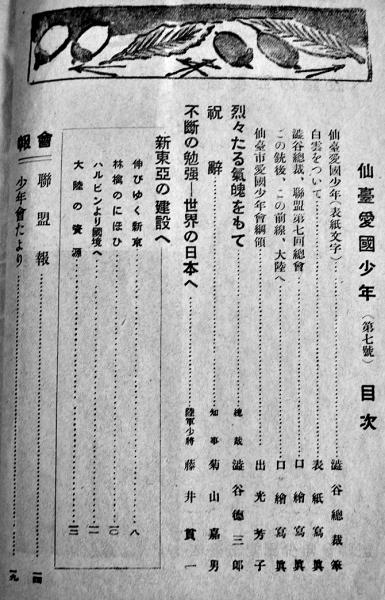 仙臺愛國少年（第七號）　目次
仙臺愛國少年（表紙文字）…………澁谷總裁筆
白雲をついて…………表紙寫眞
澁谷總裁、聯盟第七回總會…………口繪寫眞
この銃後、この前線、大陸へ…………口繪寫眞
仙臺市愛國少年會綱領…………出光芳子
烈々たる氣魄をもて…………總裁　澁谷德三郎
祝辭…………知事　菊山嘉男
不斷の勉强―世界の日本へ…………陸軍少將　藤井貫一
新東亞の建設へ
伸びゆく新京…………八
林檎のにほひ…………一〇
ハルビンより國境へ…………一一
大陸の資源…………一三
會報
聯盟報…………一四
少年會たより…………一九